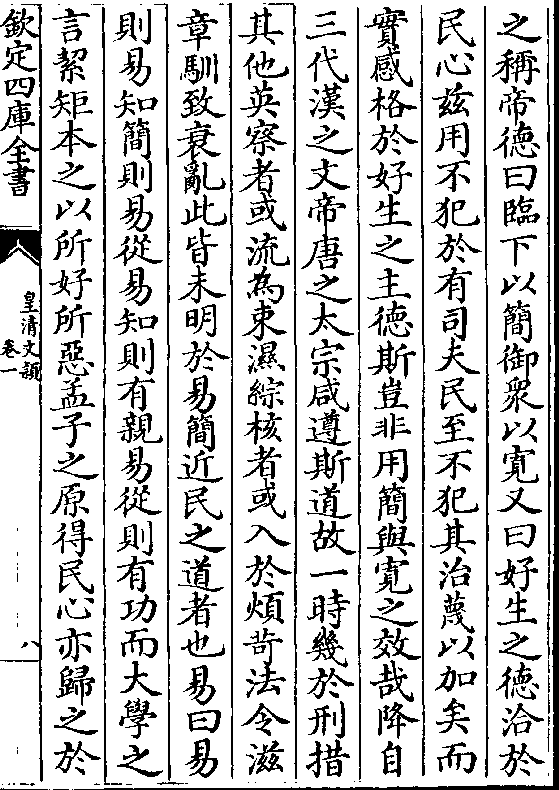 之稱帝德曰臨下以簡御衆以寛又曰好生之德洽於
民心兹用不犯於有司夫民至不犯其治蔑以加矣而
實感格於好生之主德斯豈非用簡與寛之效哉降自
三代漢之文帝唐之太宗咸遵斯道故一時幾於刑措
其他英察者或流為束濕綜核者或入於煩苛法令滋
章馴致衰亂此皆未明於易簡近民之道者也易曰易
則易知簡則易從易知則有親易從則有功而大學之
言絜矩本之以所好所惡孟子之原得民心亦歸之於
欽定四庫全書
皇清文頴
卷一
八